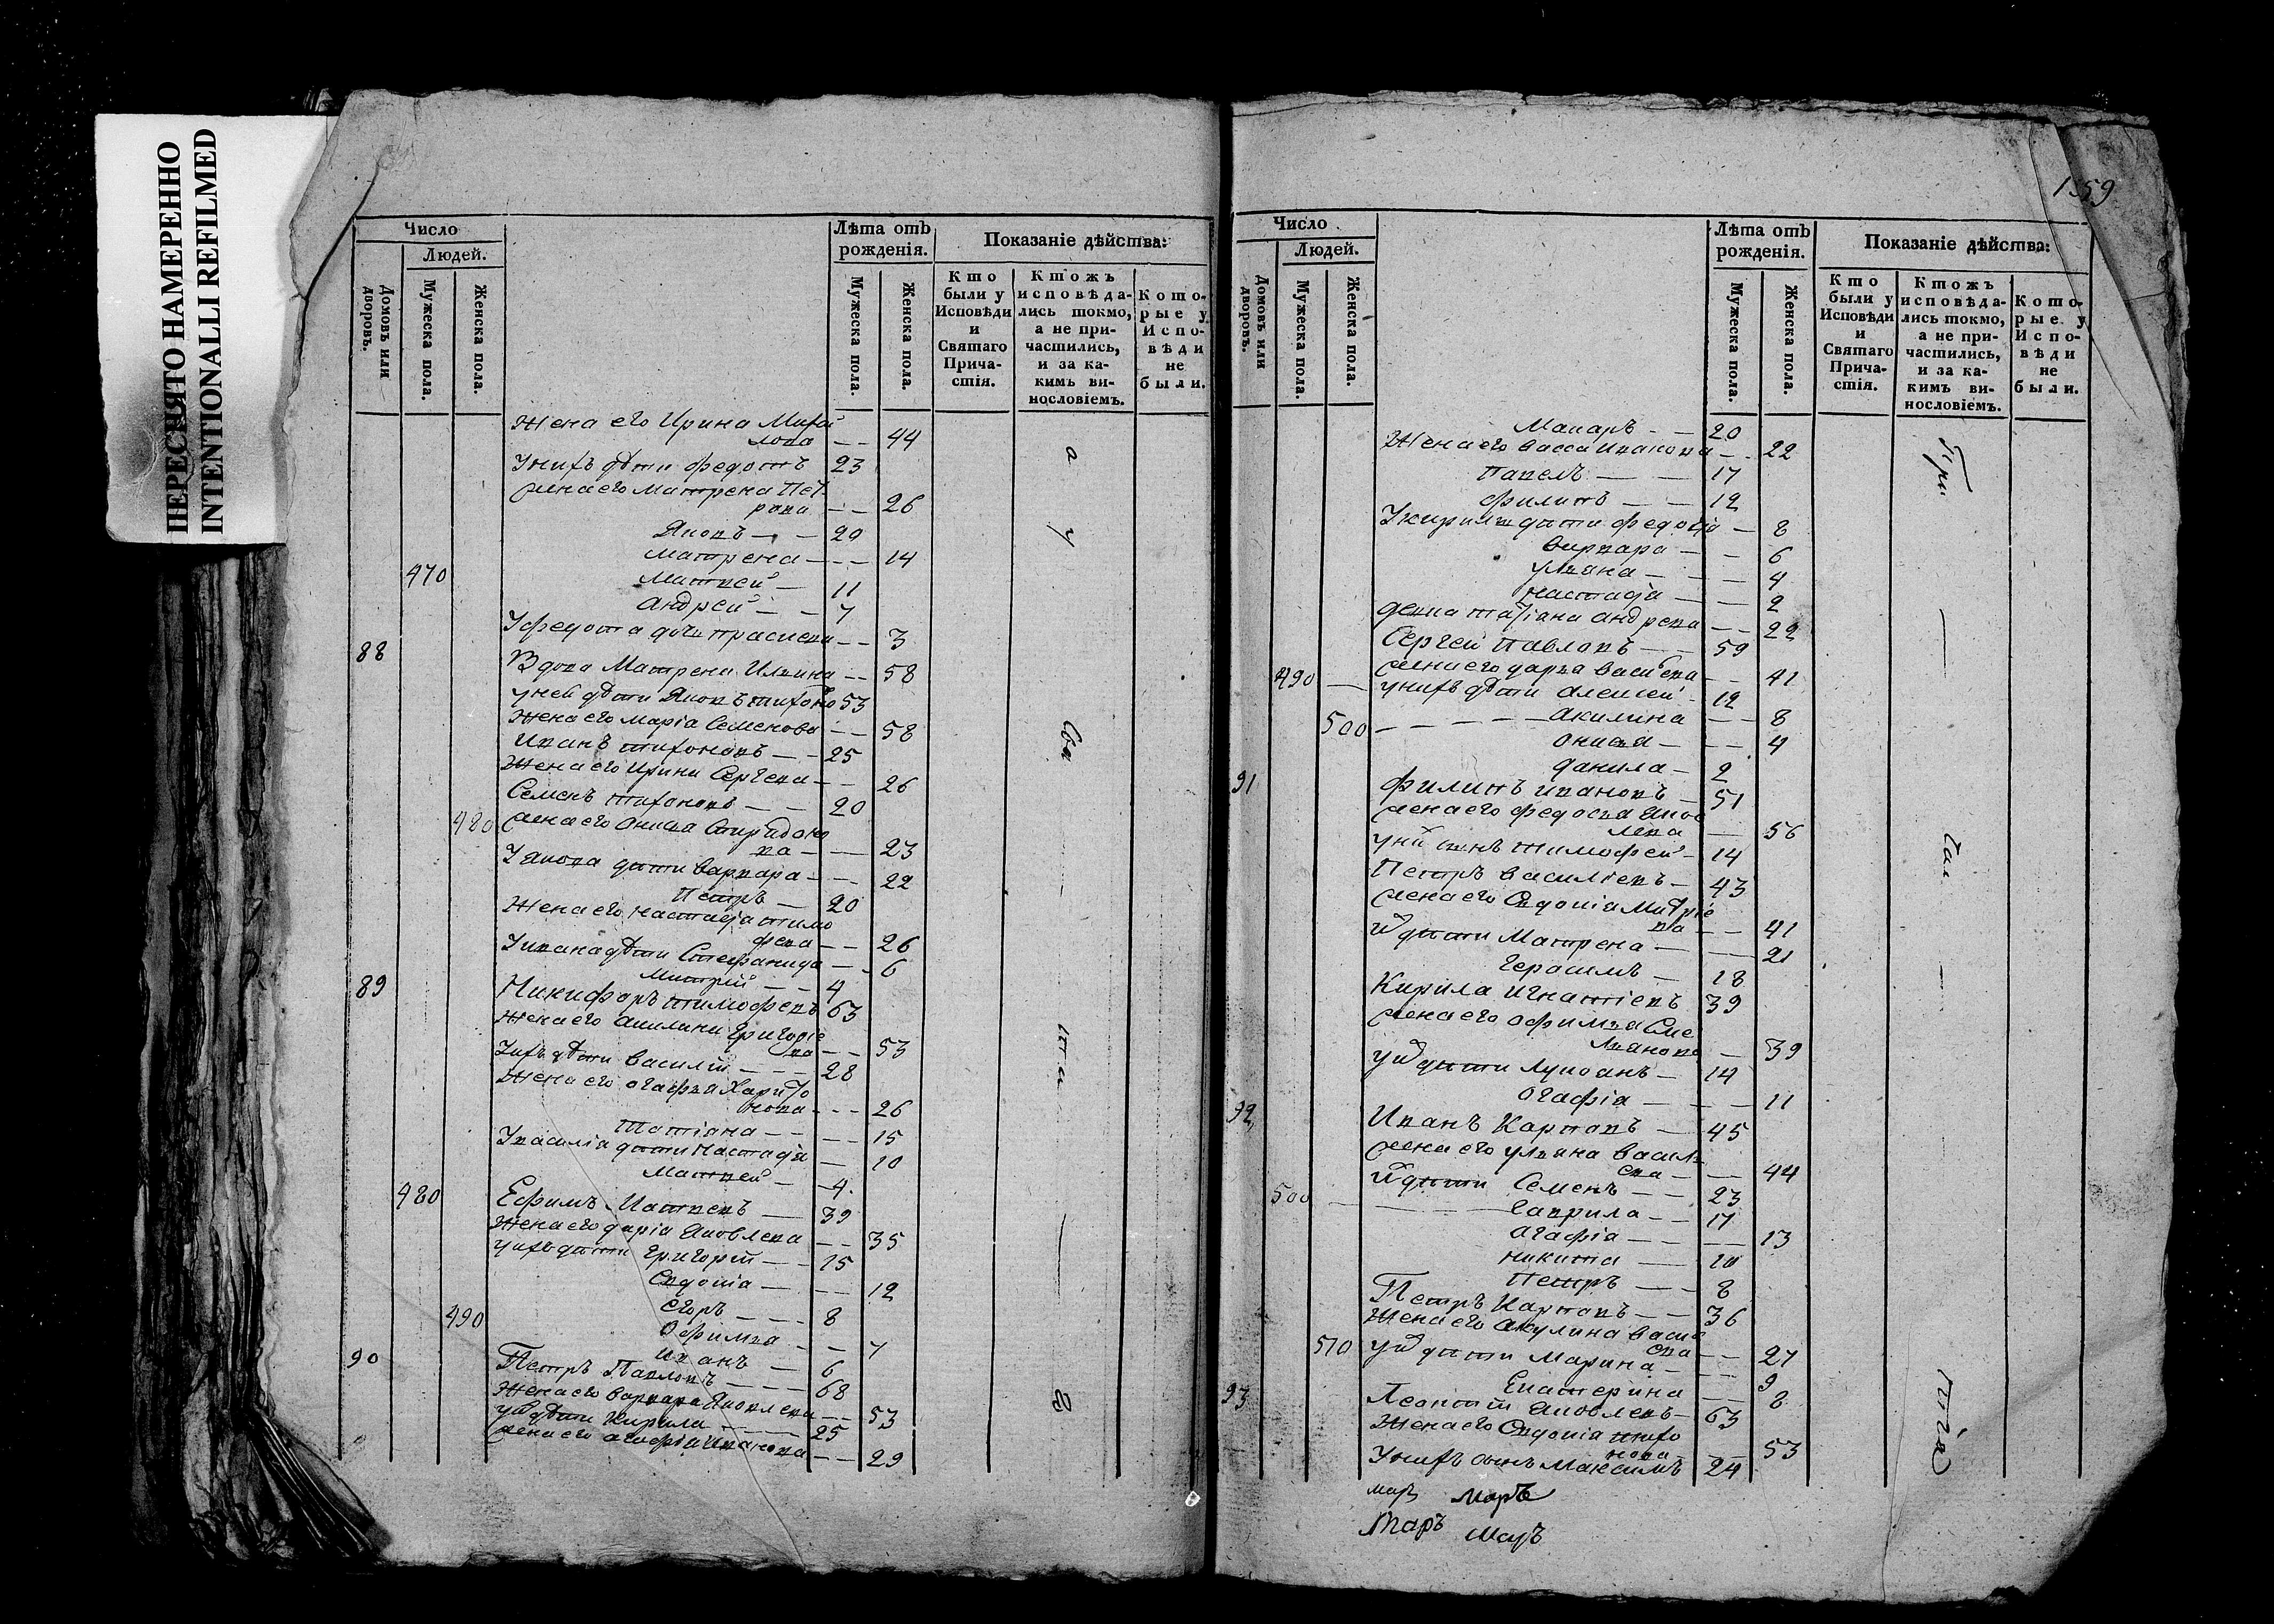 ПЕРЕСНЯТО НАМЕРЕННО
INTENTIONALLI REFILMED
Число
Людей.
Домовъ или дворовъ.
Мужеска пола.
Женска пола.
Лѣта отъ рожденія.
Мужеска пола.
Женска пола.
Показаніе дѣйства:
Кто были у Исповѣди и Святаго Причастія.
Ктожъ исповѣдались токмо, а не причастились, и за какимъ винословіемъ.
Которые у Исповѣди не были.
Жена его Ирина Михай
лова — — 44
Унихъ дѣти Федотъ 23
Жена его Матрена Пет
рова — — 26
Яковъ — — 20
Матрена — — 14
470 Матвей — 11
Андрей — — 7
У Федота дочь Прасковя — — 3
88 Вдова Матрена Ильина — — 58
Жена его Марія Семенова — — 58
Иванъ Тихоновъ — — 25
Жена его Ирина Сергева — — 26
Семенъ Тихоновъ — — 20
480 Жена его Анисья Спиридоно
ва — — 23
У Якова дѣти Варвара — — 22
Петръ — 20
Жена его Настасja Тимо
феева — — 26
У Ивана дѣти Стефанида — — 6
Митрій — — 4
89 Никифоръ Тимофевъ 63
Жена его Акилина Григорíе
ва — — 53
Унихъ дѣти Василій — — — 28
Жена его Огафья Харито
нова — — — 26
Татіана — — — 15
У Василія дѣти Настасja — 10
Матвей — 4
480 Ефимъ Матвевъ — 39
Жена его Дарія Яковлева — — 35
Унихъ дѣти Григорій — — 15
Евдокія — — — 12
Егоръ — — — 8
490 Офимья — — 7
Иванъ — 6
90 Петръ Павловъ — — — 68
Жена его Варвара Яковлева — — 53
Уних дѣти Кирила — — — 25
Жена его Агафія Иванова — — 29
159
Число
Людей.
Домовъ или дворовъ.
Мужеска пола.
Женска пола.
Лѣта отъ рожденія.
Мужеска пола.
Женска пола.
Показаніе дѣйства:
Кто были у Исповѣди и Святаго Причастія.
Ктожъ исповѣдались токмо, а не причастились, и за какимъ винословіемъ.
Которые у Исповѣди не были.
Макаръ — — 20
Жена его Васса Иванова — — 22
Павелъ — — 17
Филипъ — — 12
У Кирилы дѣти Федосja — 8
Варвара — — 6
Ульяна — — — 4
Настасja — — 2
Девка Татіана Андрева — — 22
Сергей Павловъ — — 59
490 Жена его Дарья Васильева — — 41
Унихъ дѣти Алексей — 12
500 Акилина — — 8
Онисья — — — 4
Данила — 2
91 Филипъ Ивановъ — 51
Жена его Федосья Яков
лева — 56
Уних сынъ Тимофей — 14
Петръ Василіевъ — 43
Жена его Евдокія Митріе
ва — — 41
дѣти Матрена — — — 21
Герасимъ — 18
Кирила Игнатіевъ 39
Жена его Офимья Еме
льянова — 39
дѣти Лукоянъ — 14
Огафія — — — 11
92 Иванъ Карповъ — 45
Жена его Ульяна Василь
ева — — 44
500 дѣти Семенъ — — 23
Гаврила — — 17
Агафія — — — 13
Никита — 10
Петръ — — 8
Петръ Карповъ — — 36
Жена его Акулина Васил
ева — — 27
510 дѣти Марина — — — 9
Екатерина — — 8
93 Леонтій Яковлевъ — 63
Жена его Евдокія Тихо
нова — 53
Унихъ сынъ Максимъ 24
При
Маръ
Маръ